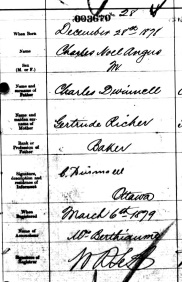 003670
28
When Born
December 28th 1878
Name
Charles Noel Angus
Sex
(M. or F.)
M
Name and
surname of
Father
Charles Dwinnell
Name and
maiden sur-
name of
Mother
Gertrude Richer
Rank or
Profession of
Father
Baker
Signature,
description and
residence of
Informant
C. Dwinnell
Ottawa
When
Registered
March 6th 1879
Name of
Accoucheur
Mr Berthiaume
Signature of
Registrar